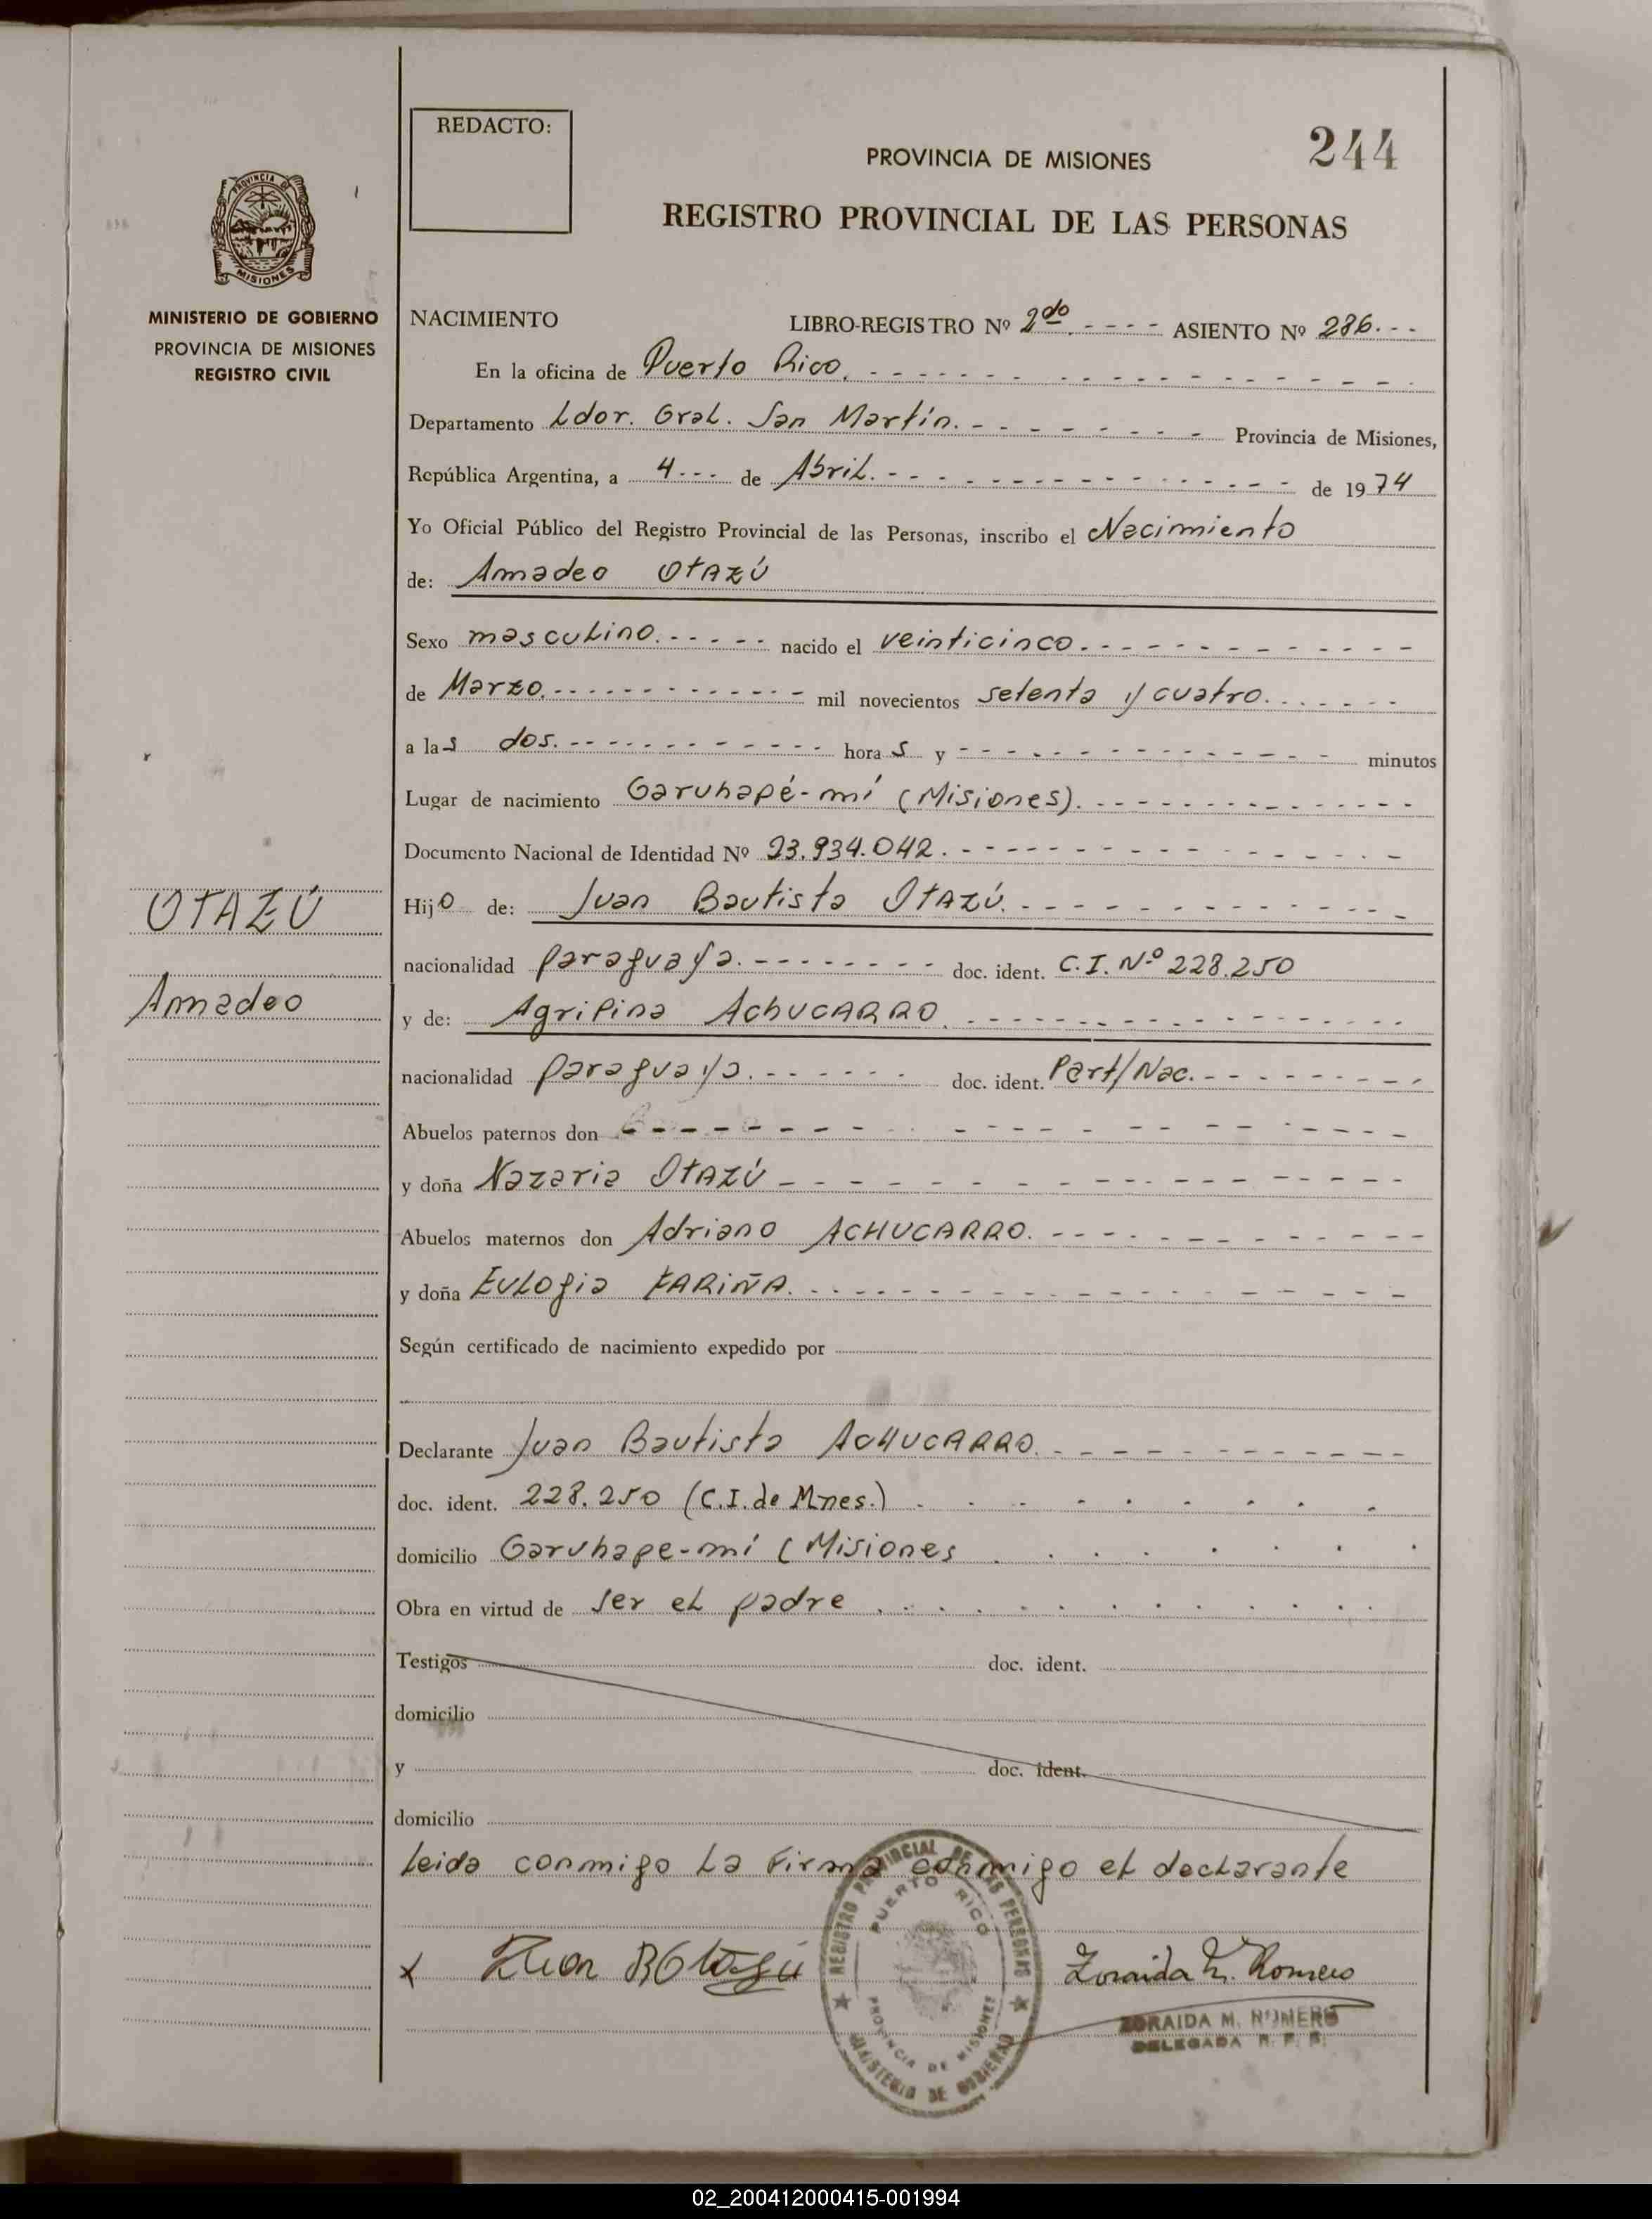 REDACTO:
244
PROVINCIA DE MISIONES
REGISTRO PROVINCIAL DE LAS PERSONAS
PROVINCIA DE
MISIONES
MINISTERIO DE GOBIERNO
PROVINCIA DE MISIONES
REGISTRO CIVIL
NACIMIENTO LIBRO-REGISTRO Nº 2do. - - - - ASIENTO Nº 286. - -
En la oficina de Puerto Rico.
Departamento Ldor. Gral. San Martín. Provincia de Misiones,
República Argentina, a 4 - - - de Abril. de 1974
Yo Oficial Público del Registro Provincial de las Personas, inscribo el Nacimiento
de: Amadeo OtAZÚ
Sexo masculino. nacido el veinticinco.
de Marzo. mil novecientos setenta y cuatro.
a las dos. horas y - - - minutos
Lugar de nacimiento Garuhapé-mí (Misiones).
Documento Nacional de Identidad Nº 23.934.042.
OTAZÚ
Hijo de: Juan Bautista OtAZÚ.
nacionalidad paraguaya. doc. ident. C.I. Nº 228.250
Amadeo
y de: Agripina AchUCARRO.
nacionalidad paraguaya. doc. ident. Part/Nac.
Abuelos paternos don - - -
y doña Nazaria OtAZÚ
Abuelos maternos don Adriano ACHUCARRO.
y doña Eulogia FARIÑA.
Según certificado de nacimiento expedido por
Declarante Juan Bautista ACHUCARRO.
doc. ident. 228.250 (C.I. de Mnes.)
domicilio Garuhape-mí (Misiones
Obra en virtud de ser el padre
Testigos doc. ident.
domicilio
y doc. ident.
domicilio
Leida conmigo La Firma conmigo el declarante
x Juan B Otazú
Zoraida M. Romero
ZORAIDA M. ROMERO
DELEGADA R. P. P.
REGISTRO PROVINCIAL DE LAS PERSONAS
PUERTO RICO
PROVINCIA DE MISIONES
MINISTERIO DE GOBIERNO
02_200412000415-001994